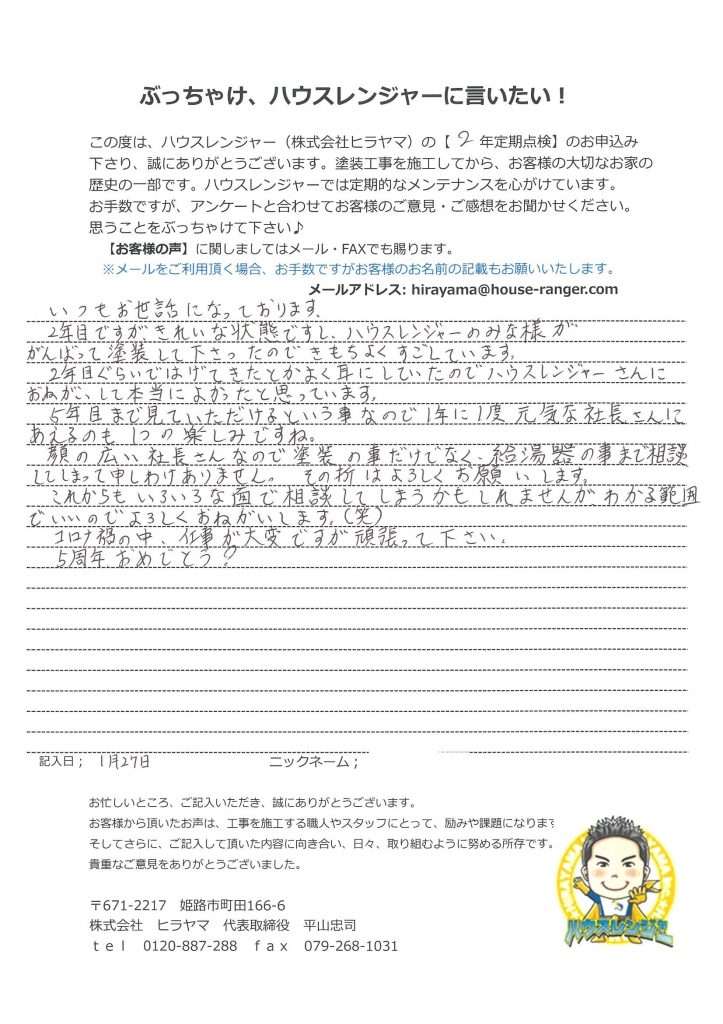 ぶっちゃけ、ハウスレンジャーに言いたい！
この度は、ハウスレンジャー（株式会社ヒラヤマ）の【 2 年定期点検】のお申込み
下さり、誠にありがとうございます。塗装工事を施工してから、お客様の大切なお家の
歴史の一部です。ハウスレンジャーでは定期的なメンテナンスを心がけています。
お手数ですが、アンケートと合わせてお客様のご意見・ご感想をお聞かせください。
思うことをぶっちゃけて下さい♪
【お客様の声】に関しましてはメール・FAXでも賜ります。
※メールをご利用頂く場合、お手数ですがお客様のお名前の記載もお願いいたします。
メールアドレス: hirayama@house-ranger.com
いつもお世話になっております。
2年目ですがきれいな状態ですし、ハウスレンジャーのみな様が
がんばって塗装して下さったのできもちよくすごしています。
2年目ぐらいではげてきたとかよく耳にしていたのでハウスレンジャーさんに
おねがいして本当によかったと思っています。
5年目まで見ていただけるという事なので1年に1度 元気な社長さんに
あえるのも1つの楽しみですね。
顔の広い社長さんなので塗装の事だけでなく、給湯器の事まで相談
してしまって申しわけありません。 その折はよろしくお願いします。
これからもいろいろな面で相談してしまうかもしれませんがわかる範囲
でいいのでよろしくおねがいします。(笑)
コロナ禍の中、仕事が大変ですが頑張って下さい。
5周年おめでとう?
記入日； 1月27日 ニックネーム；
お忙しいところ、ご記入いただき、誠にありがとうございます。
お客様から頂いたお声は、工事を施工する職人やスタッフにとって、励みや課題になります
そしてさらに、ご記入して頂いた内容に向き合い、日々、取り組むように努める所存です。
貴重なご意見をありがとうございました。
〒671-2217 姫路市町田166-6
株式会社 ヒラヤマ 代表取締役 平山忠司
ｔｅｌ 0120-887-288 ｆａｘ 079-268-1031
ハウスレンジャー